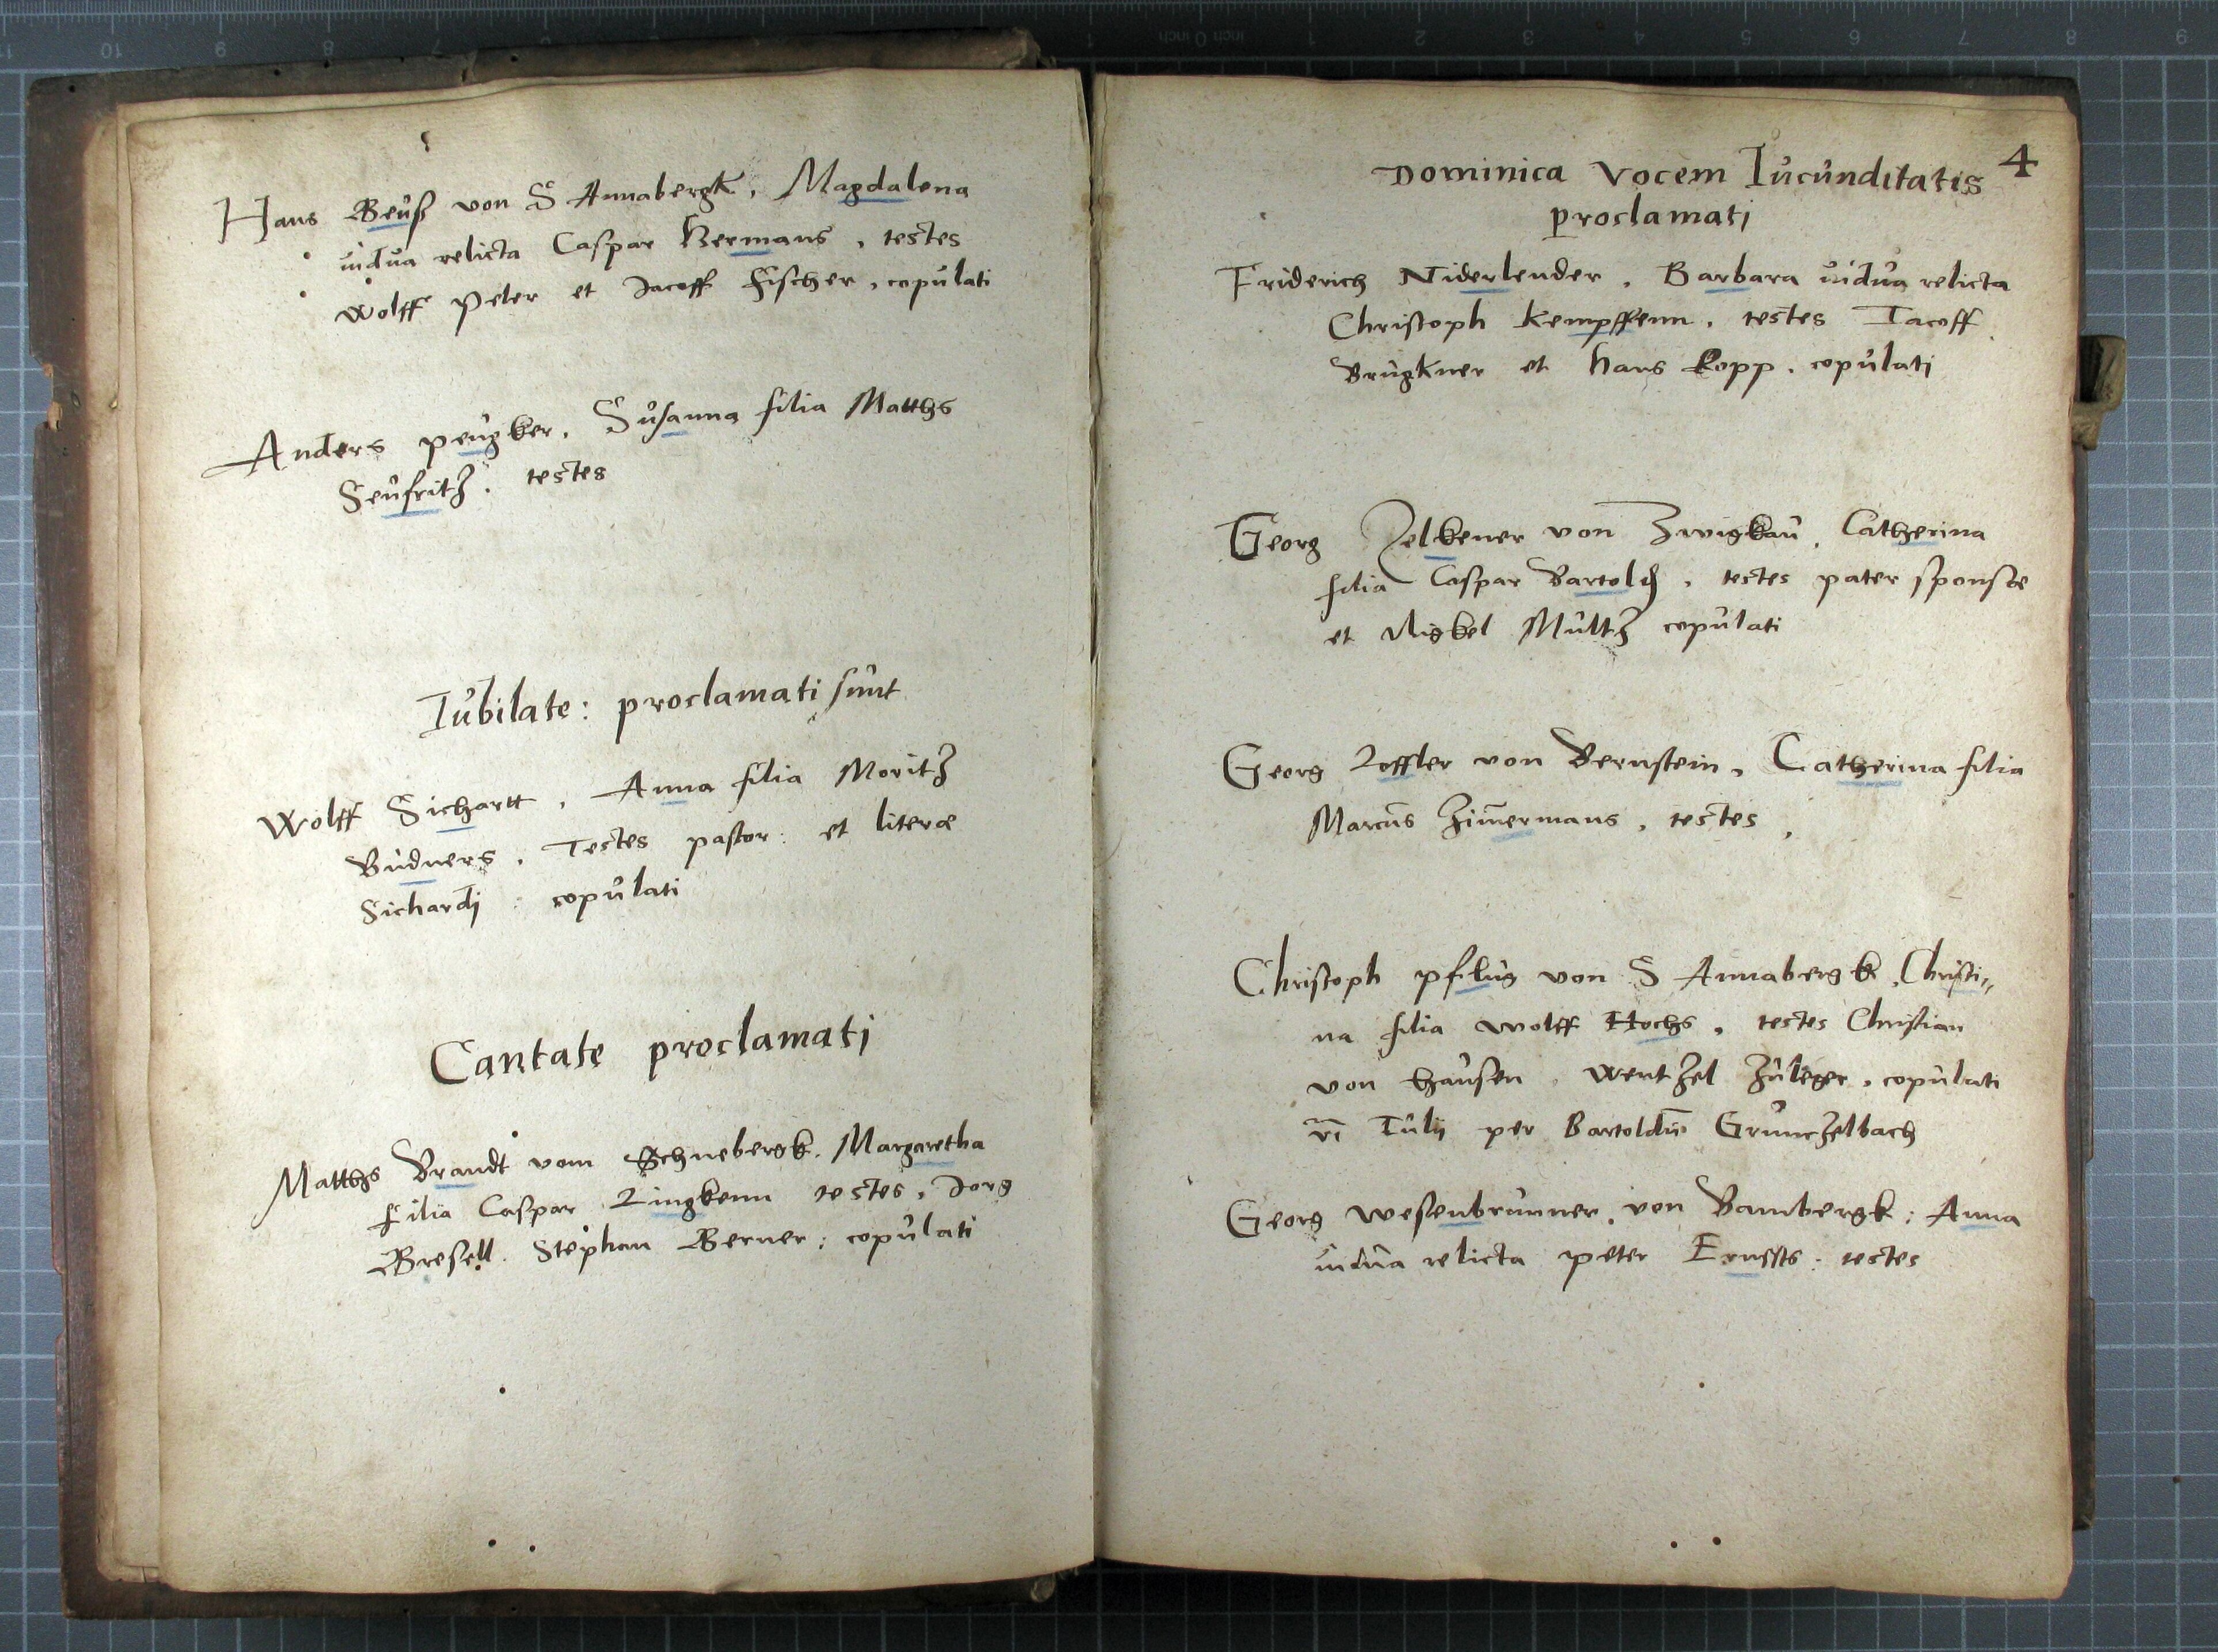 Hans Beuß von S Annabergk, Magdalena
uidua relicta Caspar Hermans, testes
Wolff Peter et Jacoff Fischer, copulati
Anders peugker, Susanna filia Matths
Seufritz. testes
Iubilate: proclamati sunt
Wolff Sichartt, Anna filia Moritz
Budners. Testes pastor: et literæ
Sichardj: copulati
Cantate proclamati
Matths Brandt vom Schnebergk. Margaretha
filia Caspar Lingkenn testes, Jorg
Bresell. Stephan Berner: copulati
4
Dominica Vocem Iucunditatis
proclamati
Friderich Niderlender. Barbara uidua relicta
Christoph Kempffenn. testes Iacoff
Brugkner et Hans Kopp. copulati
Georg Zelkener von Zwigkau, Catherina
filia Caspar Bartolds, testes pater sponsæ
et Nigkel Multz copulati
Georg Loffler von Bernstein, Catherina filia
Marcus Zim̄ermans, testes,
Christoph pflug von S Annabergk, Christi„
na filia Wolff Hochs, testes Christian
von Hausen, Wentzel Zuleger, copulati
vi Iulij per Bartoldū Grunczelbach
Georg Wesenbrunner, von Bambergk: Anna
uidua relicta peter Ernssts: testes